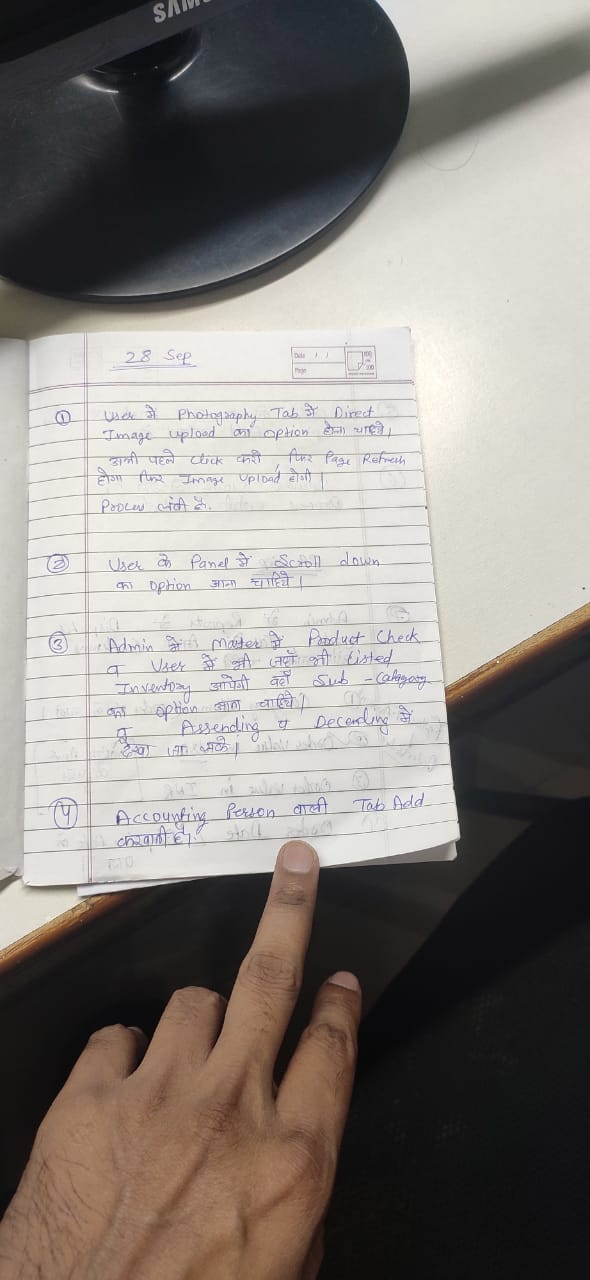 SAMS
28 Sep
Date / /
Page
① User में Photography Tab में Direct
Image upload का option होना चाहिये।
अभी पहले click करो, फिर Page Refresh
होगा फिर Image Upload होगी।
Process लंबी है.
② User के Panel में Scroll down
का option आना चाहिये।
③ Admin में Master में Product Check
व User में भी जहाँ भी Listed
Inventory आयेगी वहाँ Sub-Category
का option आना चाहिये।
व Assending व Decending में
देखा जा सके।
④ Accounting Person वाली Tab Add
करवानी है.